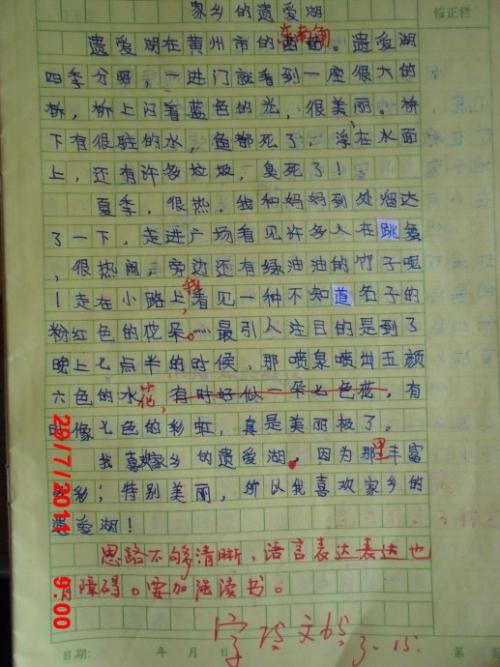 家乡的遗爱湖
修正栏
遗爱湖在黄州市的西面东南角。遗爱湖
四季分明，一进门就看到一座很大的
桥，桥上闪着蓝色的光，很美丽。桥
下有很脏的水，鱼都死了，浮在水面
上，还有许多垃圾，臭死了！
夏季，很热，我和妈妈到处溜达
了一下，走进广场看见许多人在跳
，很热闹，旁边还有绿油油的竹子呢
！走在小路上，我看见一种不知道名子的
粉红色的花朵。最引人注目的是到了
晚上七点半的时候，那喷泉喷出五颜
六色的水花，有时好似一朵七色花，有
时像七色的彩虹，真是美丽极了。
我喜欢家乡的遗爱湖。因为那里丰富
多彩；特别美丽，所以我喜欢家乡的
遗爱湖！
思路不够清晰，语言表达表达也
有障碍。要加强读书。
3.15.
29/7/2011
9:00
日期：年月日
第